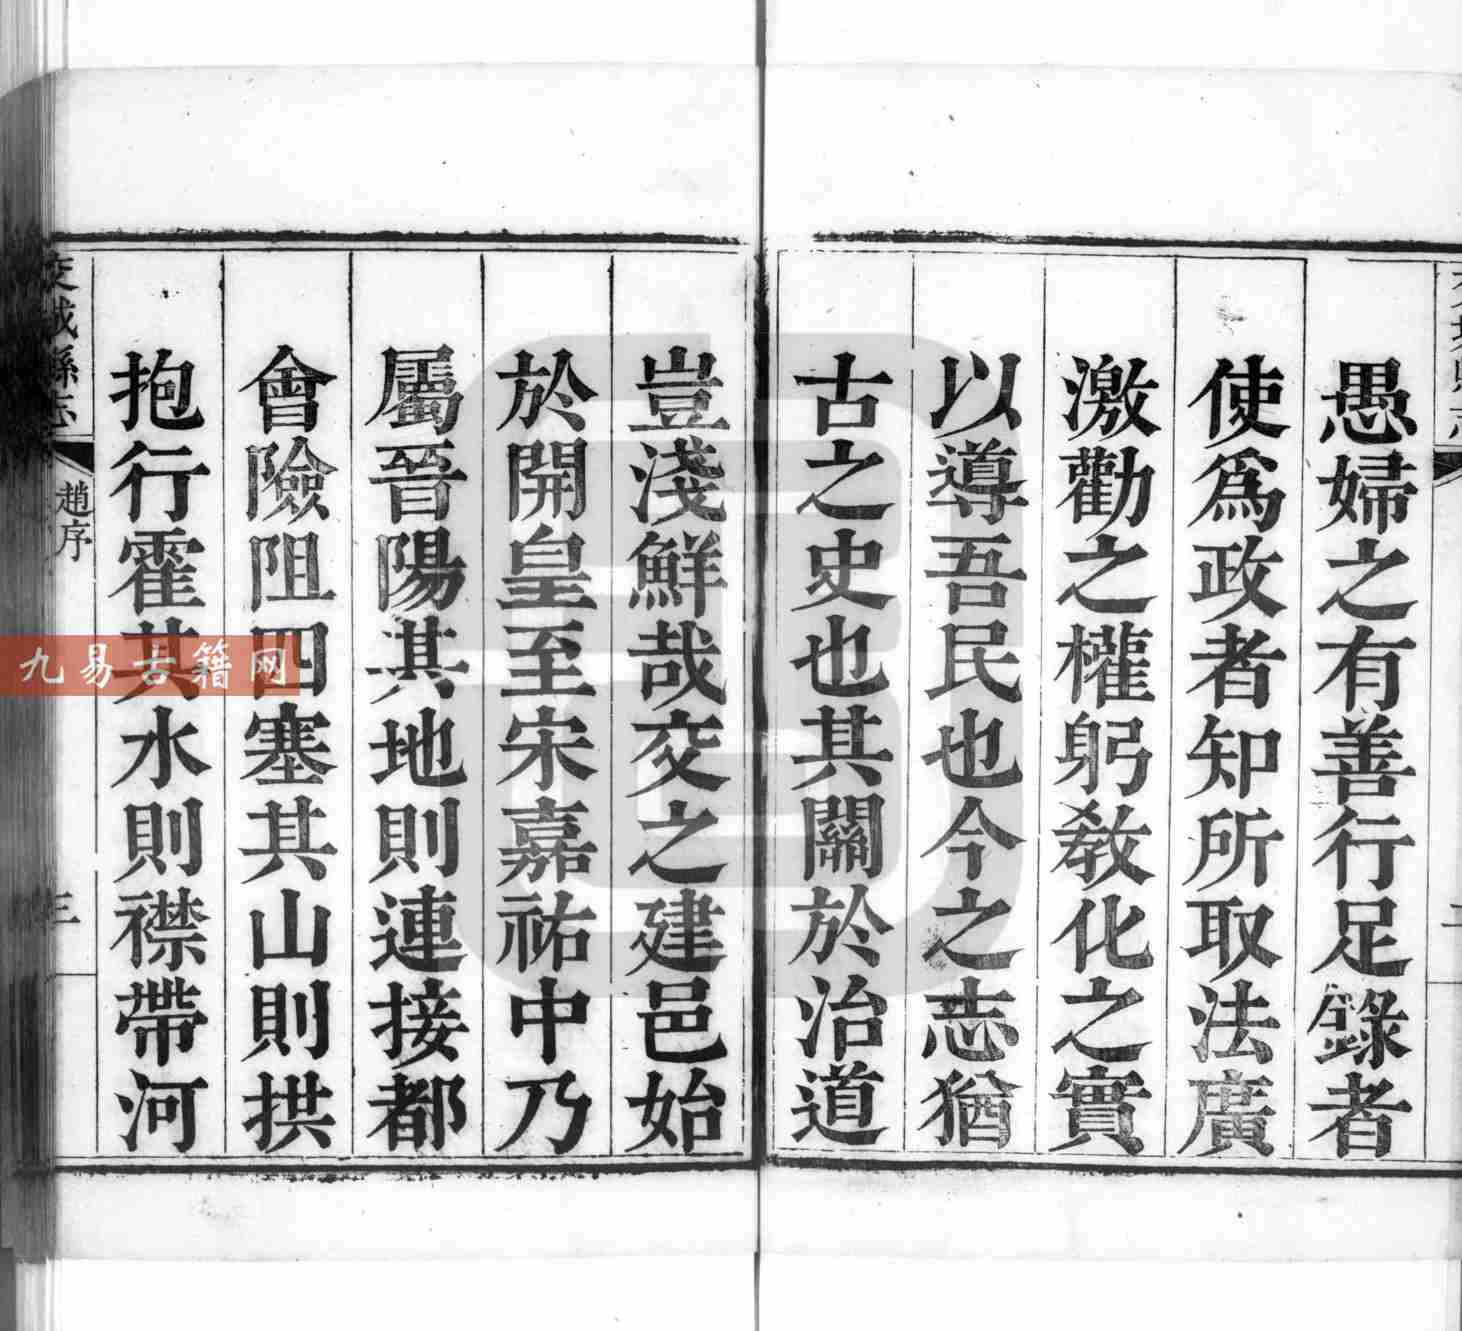 愚婦之有善行足錄者
使爲政者知所取法廣
激勸之權躬敎化之實
以導吾民也今之志猶
古之史也其關於治道
豈淺鮮哉交之建邑始
於開皇至宋嘉祐中乃
屬晉陽其地則連接都
會險阻四塞其山則拱
抱行霍其水則襟帶河
交城縣志
趙序
三
九易古籍网